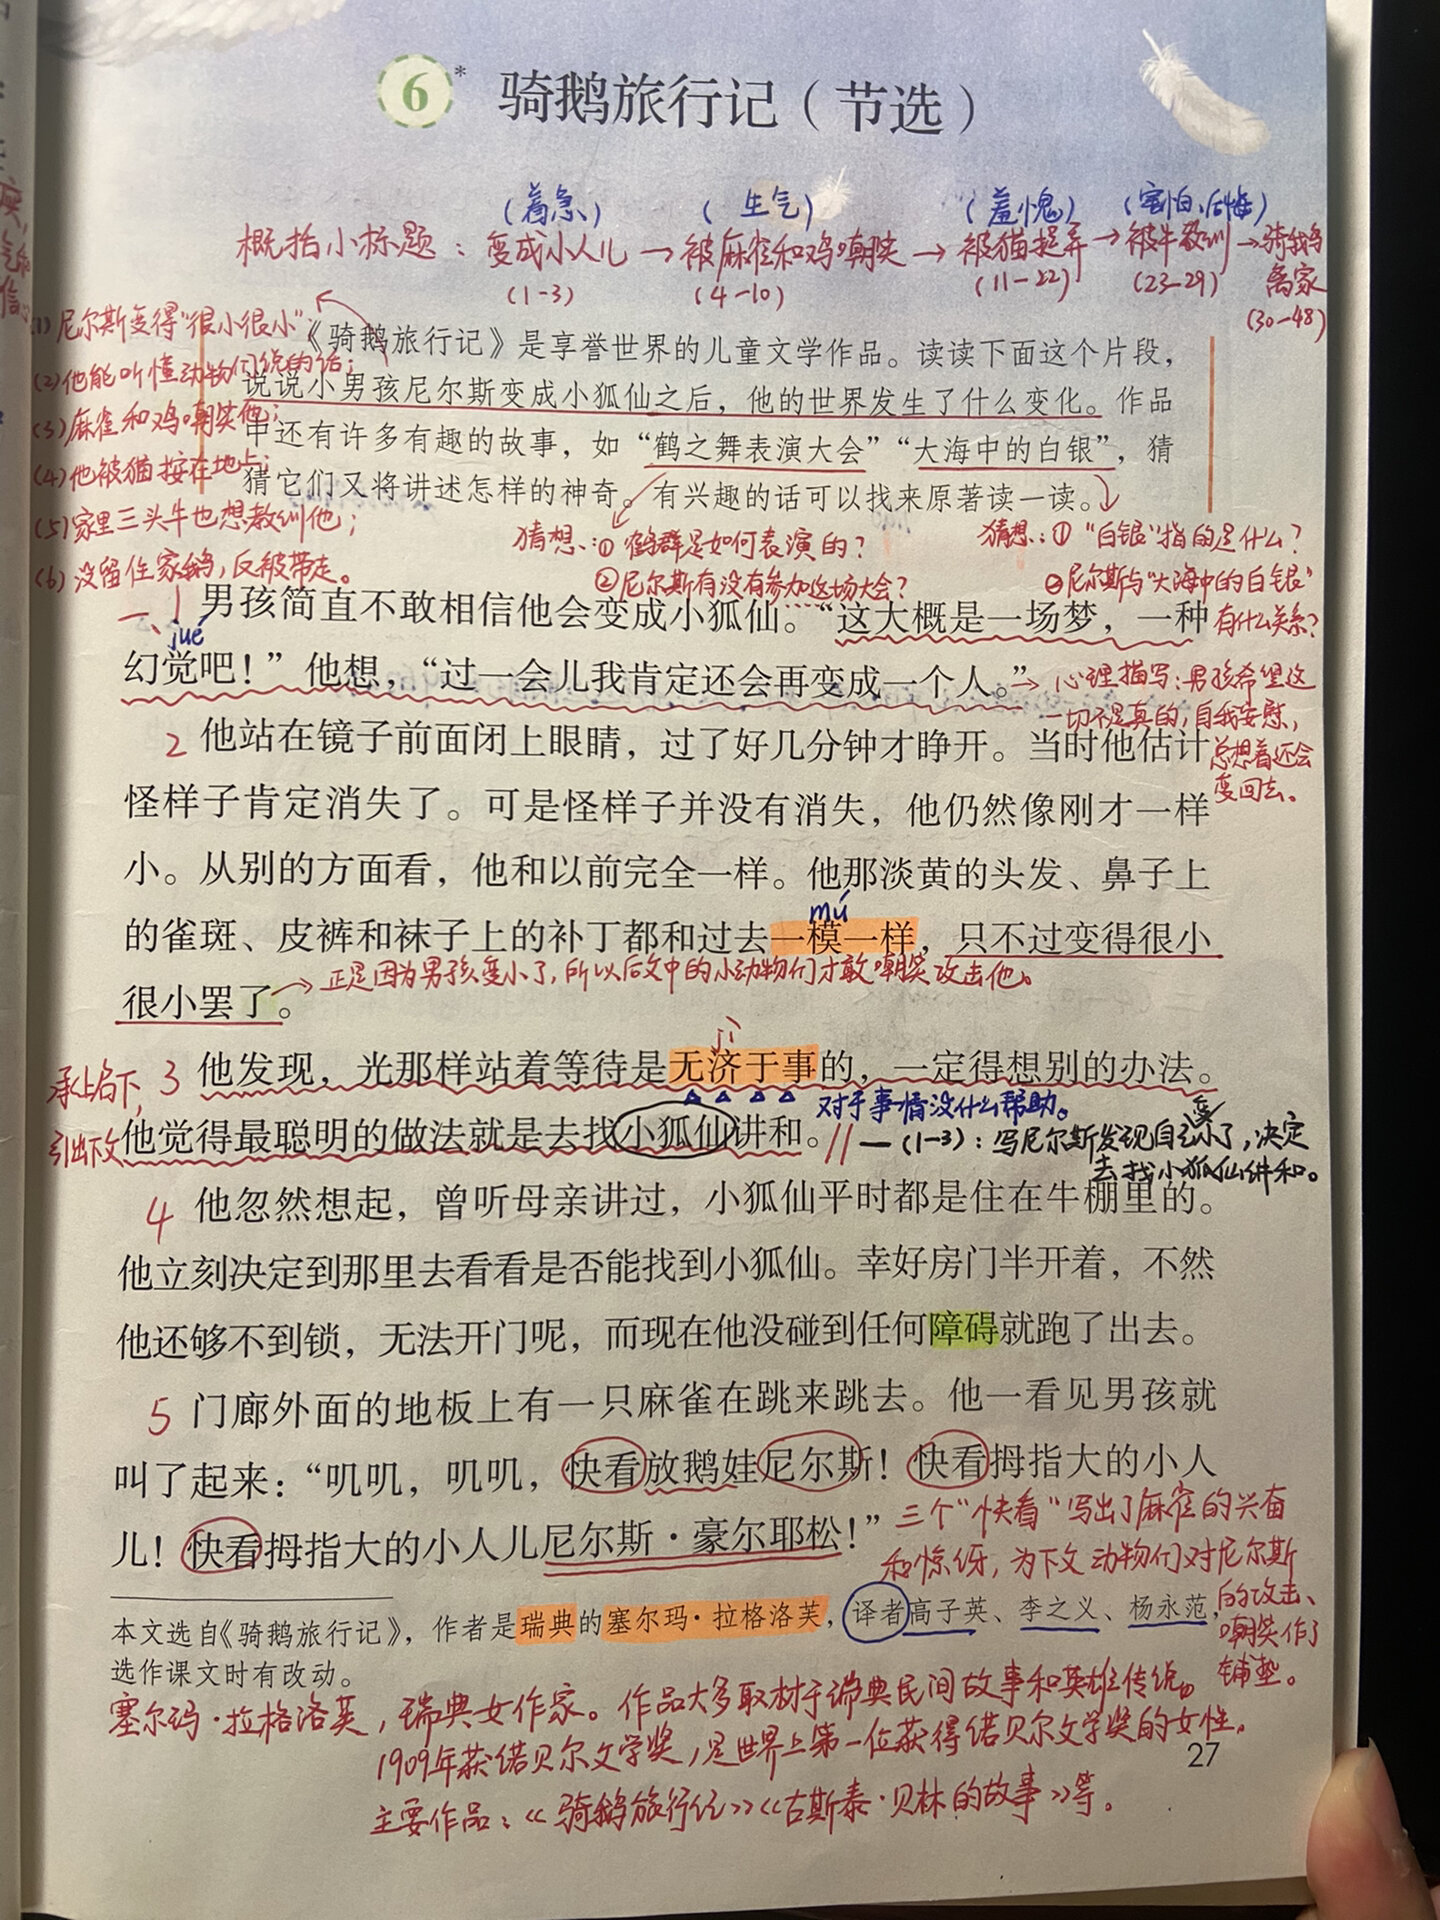 6* 骑鹅旅行记（节选）
（着急） （生气） （羞愧） （害怕、后悔）
概括小标题：变成小人儿→被麻雀和鸡嘲笑→被猫捉弄→被牛教训→骑鹅
离家
(1-3) (4-10) (11-22) (23-29)
(30-48)
(1)尼尔斯变得“很小很小”；
(2)他能听懂动物们说的话；
(3)麻雀和鸡嘲笑他；
(4)他被猫按在地上；
(5)家里三头牛也想教训他；
(6)没留住家鹅，反被带走。
《骑鹅旅行记》是享誉世界的儿童文学作品。读读下面这个片段，
说说小男孩尼尔斯变成小狐仙之后，他的世界发生了什么变化。作品
中还有许多有趣的故事，如“鹤之舞表演大会”“大海中的白银”，猜
猜它们又将讲述怎样的神奇。有兴趣的话可以找来原著读一读。
猜想：①鹤群是如何表演的？
②尼尔斯有没有参加这场大会？
猜想：①“白银”指的是什么？
②尼尔斯与“大海中的白银”
有什么关系？
一、1 男孩简直不敢相信他会变成小狐仙。“这大概是一场梦，一种
jué
幻觉吧！”他想，“过一会儿我肯定还会再变成一个人。”
→心理描写：男孩希望这
一切不是真的，自我安慰，
总想着还会
变回去。
2 他站在镜子前面闭上眼睛，过了好几分钟才睁开。当时他估计
怪样子肯定消失了。可是怪样子并没有消失，他仍然像刚才一样
小。从别的方面看，他和以前完全一样。他那淡黄的头发、鼻子上
mú
的雀斑、皮裤和袜子上的补丁都和过去一模一样，只不过变得很小
很小罢了。
→正是因为男孩变小了，所以后文中的小动物们才敢嘲笑攻击他。
jì
3 他发现，光那样站着等待是无济于事的，一定得想别的办法。
对于事情没什么帮助。
承上启下，
引出下文
他觉得最聪明的做法就是去找小狐仙讲和。
//一(1-3)：写尼尔斯发现自己变小了，决定
去找小狐仙讲和。
4 他忽然想起，曾听母亲讲过，小狐仙平时都是住在牛棚里的。
他立刻决定到那里去看看是否能找到小狐仙。幸好房门半开着，不然
他还够不到锁，无法开门呢，而现在他没碰到任何障碍就跑了出去。
5 门廊外面的地板上有一只麻雀在跳来跳去。他一看见男孩就
叫了起来：“叽叽，叽叽，快看放鹅娃尼尔斯！快看拇指大的小人
儿！快看拇指大的小人儿尼尔斯·豪尔耶松！”
三个“快看”写出了麻雀的兴奋
和惊讶，为下文动物们对尼尔斯
的攻击、
嘲笑作了
铺垫。
本文选自《骑鹅旅行记》，作者是瑞典的塞尔玛·拉格洛芙，译者高子英、李之义、杨永范，
选作课文时有改动。
塞尔玛·拉格洛芙，瑞典女作家。作品大多取材于瑞典民间故事和英雄传说。
1909年获诺贝尔文学奖，是世界上第一位获得诺贝尔文学奖的女性。
主要作品：《骑鹅旅行记》《古斯泰·贝林的故事》等。
27